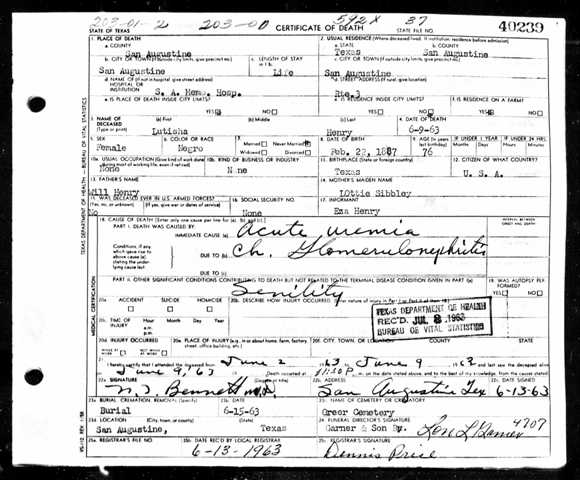 203-01-2 203-00 542X 37 40239
STATE OF TEXAS CERTIFICATE OF DEATH STATE FILE NO.
1. PLACE OF DEATH 2. USUAL RESIDENCE (Where deceased lived. If institution, residence before admission)
a. COUNTY a. STATE b. COUNTY
San Augustine Texas San Augustine
b. CITY OR TOWN (If outside city limits, give precinct no.) c. LENGTH OF STAY c. CITY OR TOWN (If outside city limits, give precinct no.)
San Augustine Life San Augustine
d. NAME OF (If not in hospital, give street address) HOSPITAL OR INSTITUTION d. STREET ADDRESS (If rural, give location)
S. A. Hosp. Rte.3
e. IS PLACE OF DEATH INSIDE CITY LIMITS? e. IS RESIDENCE INSIDE CITY LIMITS? f. IS RESIDENCE ON A FARM?
YES NO YES NO YES NO
3. NAME OF DECEASED (Type or print) (a) First (b) Middle (c) Last 4. DATE OF DEATH
Lutisha Henry 6-9-63
5. SEX 6. COLOR OR RACE 7. Married Never Married Widowed Divorced 8. DATE OF BIRTH 9. AGE (In years last birthday) IF UNDER 1 YEAR IF UNDER 24 HRS.
Female Negro 1887 76
10a. USUAL OCCUPATION (Give kind of work done during most of working life, even if retired) 10b. KIND OF BUSINESS OR INDUSTRY 11. BIRTHPLACE (State or foreign country) 12. CITIZEN OF WHAT COUNTRY?
None None Texas U. S. A.
13. FATHER'S NAME 14. MOTHER'S MAIDEN NAME
Will Henry LOttie Sibbley
15. WAS DECEASED EVER IN U.S. ARMED FORCES? 16. SOCIAL SECURITY NO. 17. INFORMANT
(Yes, no, or unknown) (If yes, give war or dates of service)
No None Eza Henry
18. CAUSE OF DEATH [Enter only one cause per line for (a), (b), and (c).] INTERVAL BETWEEN ONSET AND DEATH
PART I. DEATH WAS CAUSED BY:
IMMEDIATE CAUSE (a) Acute uremia
Conditions, if any, which gave rise to above cause (a) stating the underlying cause last
DUE TO (b) Ch. Glomerulonephritis
DUE TO (c)
PART II. OTHER SIGNIFICANT CONDITIONS CONTRIBUTING TO DEATH BUT NOT RELATED TO THE TERMINAL DISEASE CONDITION GIVEN IN PART I(a) 19. WAS AUTOPSY PERFORMED?
Senility YES NO
20a. ACCIDENT SUICIDE HOMICIDE 20b. DESCRIBE HOW INJURY OCCURRED. (Enter nature of injury in Part I or Part II of item 18.)
20c. TIME OF INJURY Hour Month Day Year
a.m.
p.m.
TEXAS DEPARTMENT OF HEALTH
REC'D JUL 8 1963
BUREAU OF VITAL STATISTICS
20d. INJURY OCCURRED 20e. PLACE OF INJURY (e.g., in or about home, farm, factory, street, office building, etc.) 20f. CITY, TOWN, OR LOCATION COUNTY STATE
WHILE AT WORK NOT WHILE AT WORK
21. I hereby certify that I attended the deceased from June 2 63 June 9
June 9, 63 Death occurred at 11:50 P m. on the date stated above, and to the best of my knowledge, from the causes stated.
22a. SIGNATURE 22b. ADDRESS 22c. DATE SIGNED
Bennett M.D. San Augustine Tex 6-13-63
23a. BURIAL, CREMATION, REMOVAL (Specify) 23b. DATE 23c. NAME OF CEMETERY OR CREMATORY
Burial 6-15-63 Greer Cemetery
23d. LOCATION (City, town, or county) (State) 24. FUNERAL DIRECTOR'S SIGNATURE
San Augustine, Texas Garner & Son By. 4707
25a. REGISTRAR'S FILE NO. 25b. DATE REC'D BY LOCAL REGISTRAR 25c. REGISTRAR'S SIGNATURE
6-13-1963 Dennis Price
TEXAS DEPARTMENT OF HEALTH — BUREAU OF VITAL STATISTICS
MEDICAL CERTIFICATION